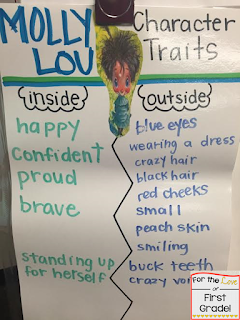 MOLLY
LOU
Character
Traits
inside
outside
happy
confident
proud
brave
standing up
for herself
blue eyes
wearing a dress
crazy hair
black hair
red cheeks
small
peach skin
smiling
buck teeth
crazy
For the Love
of
First
Grade!